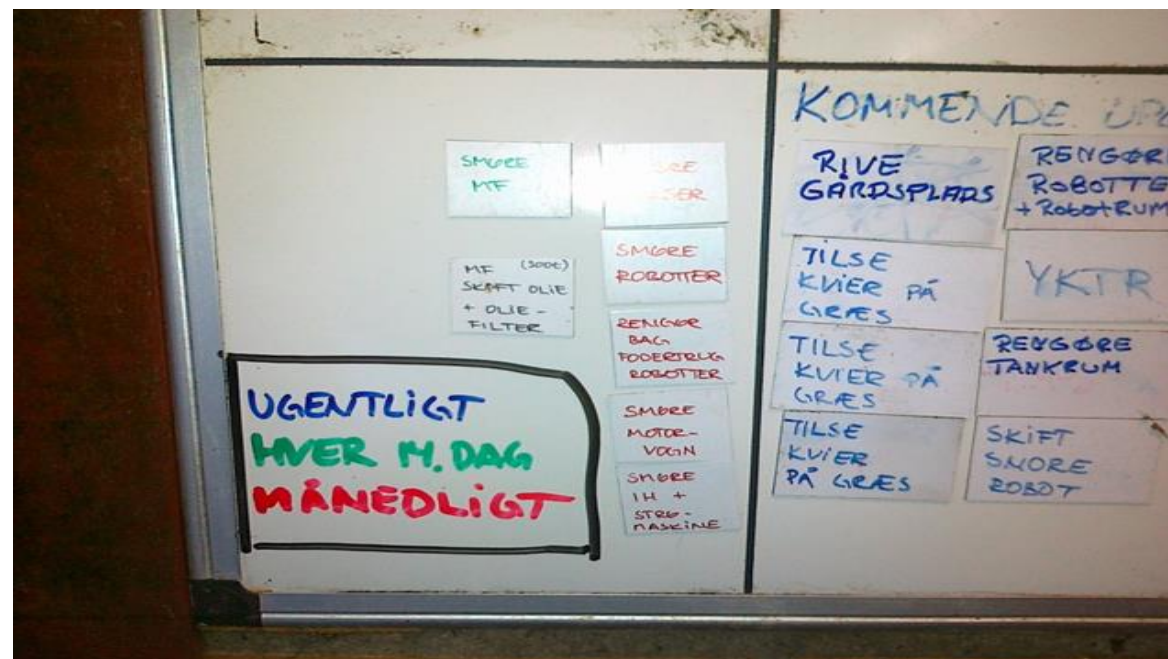 SMØRE
MF
MF (500t)
SKIFT OLIE
+ OLIE-
FILTER
UGENTLIGT
HVER M. DAG
MÅNEDLIGT
SMØRE
ROBOTTER
RENGØR
BAG
FODERTRUG
ROBOTTER
SMØRE
MOTOR-
VOGN
SMØRE
IH +
STRØ-
MASKINE
KOMMENDE
RIVE
GÅRDSPLADS
TILSE
KVIER PÅ
GRÆS
TILSE
KVIER PÅ
GRÆS
TILSE
KVIER
PÅ GRÆS
RENGØR
ROBOTTE
+ ROBOTRUM
YKTR
RENGØRE
TANKRUM
SKIFT
SMØRE
ROBOT